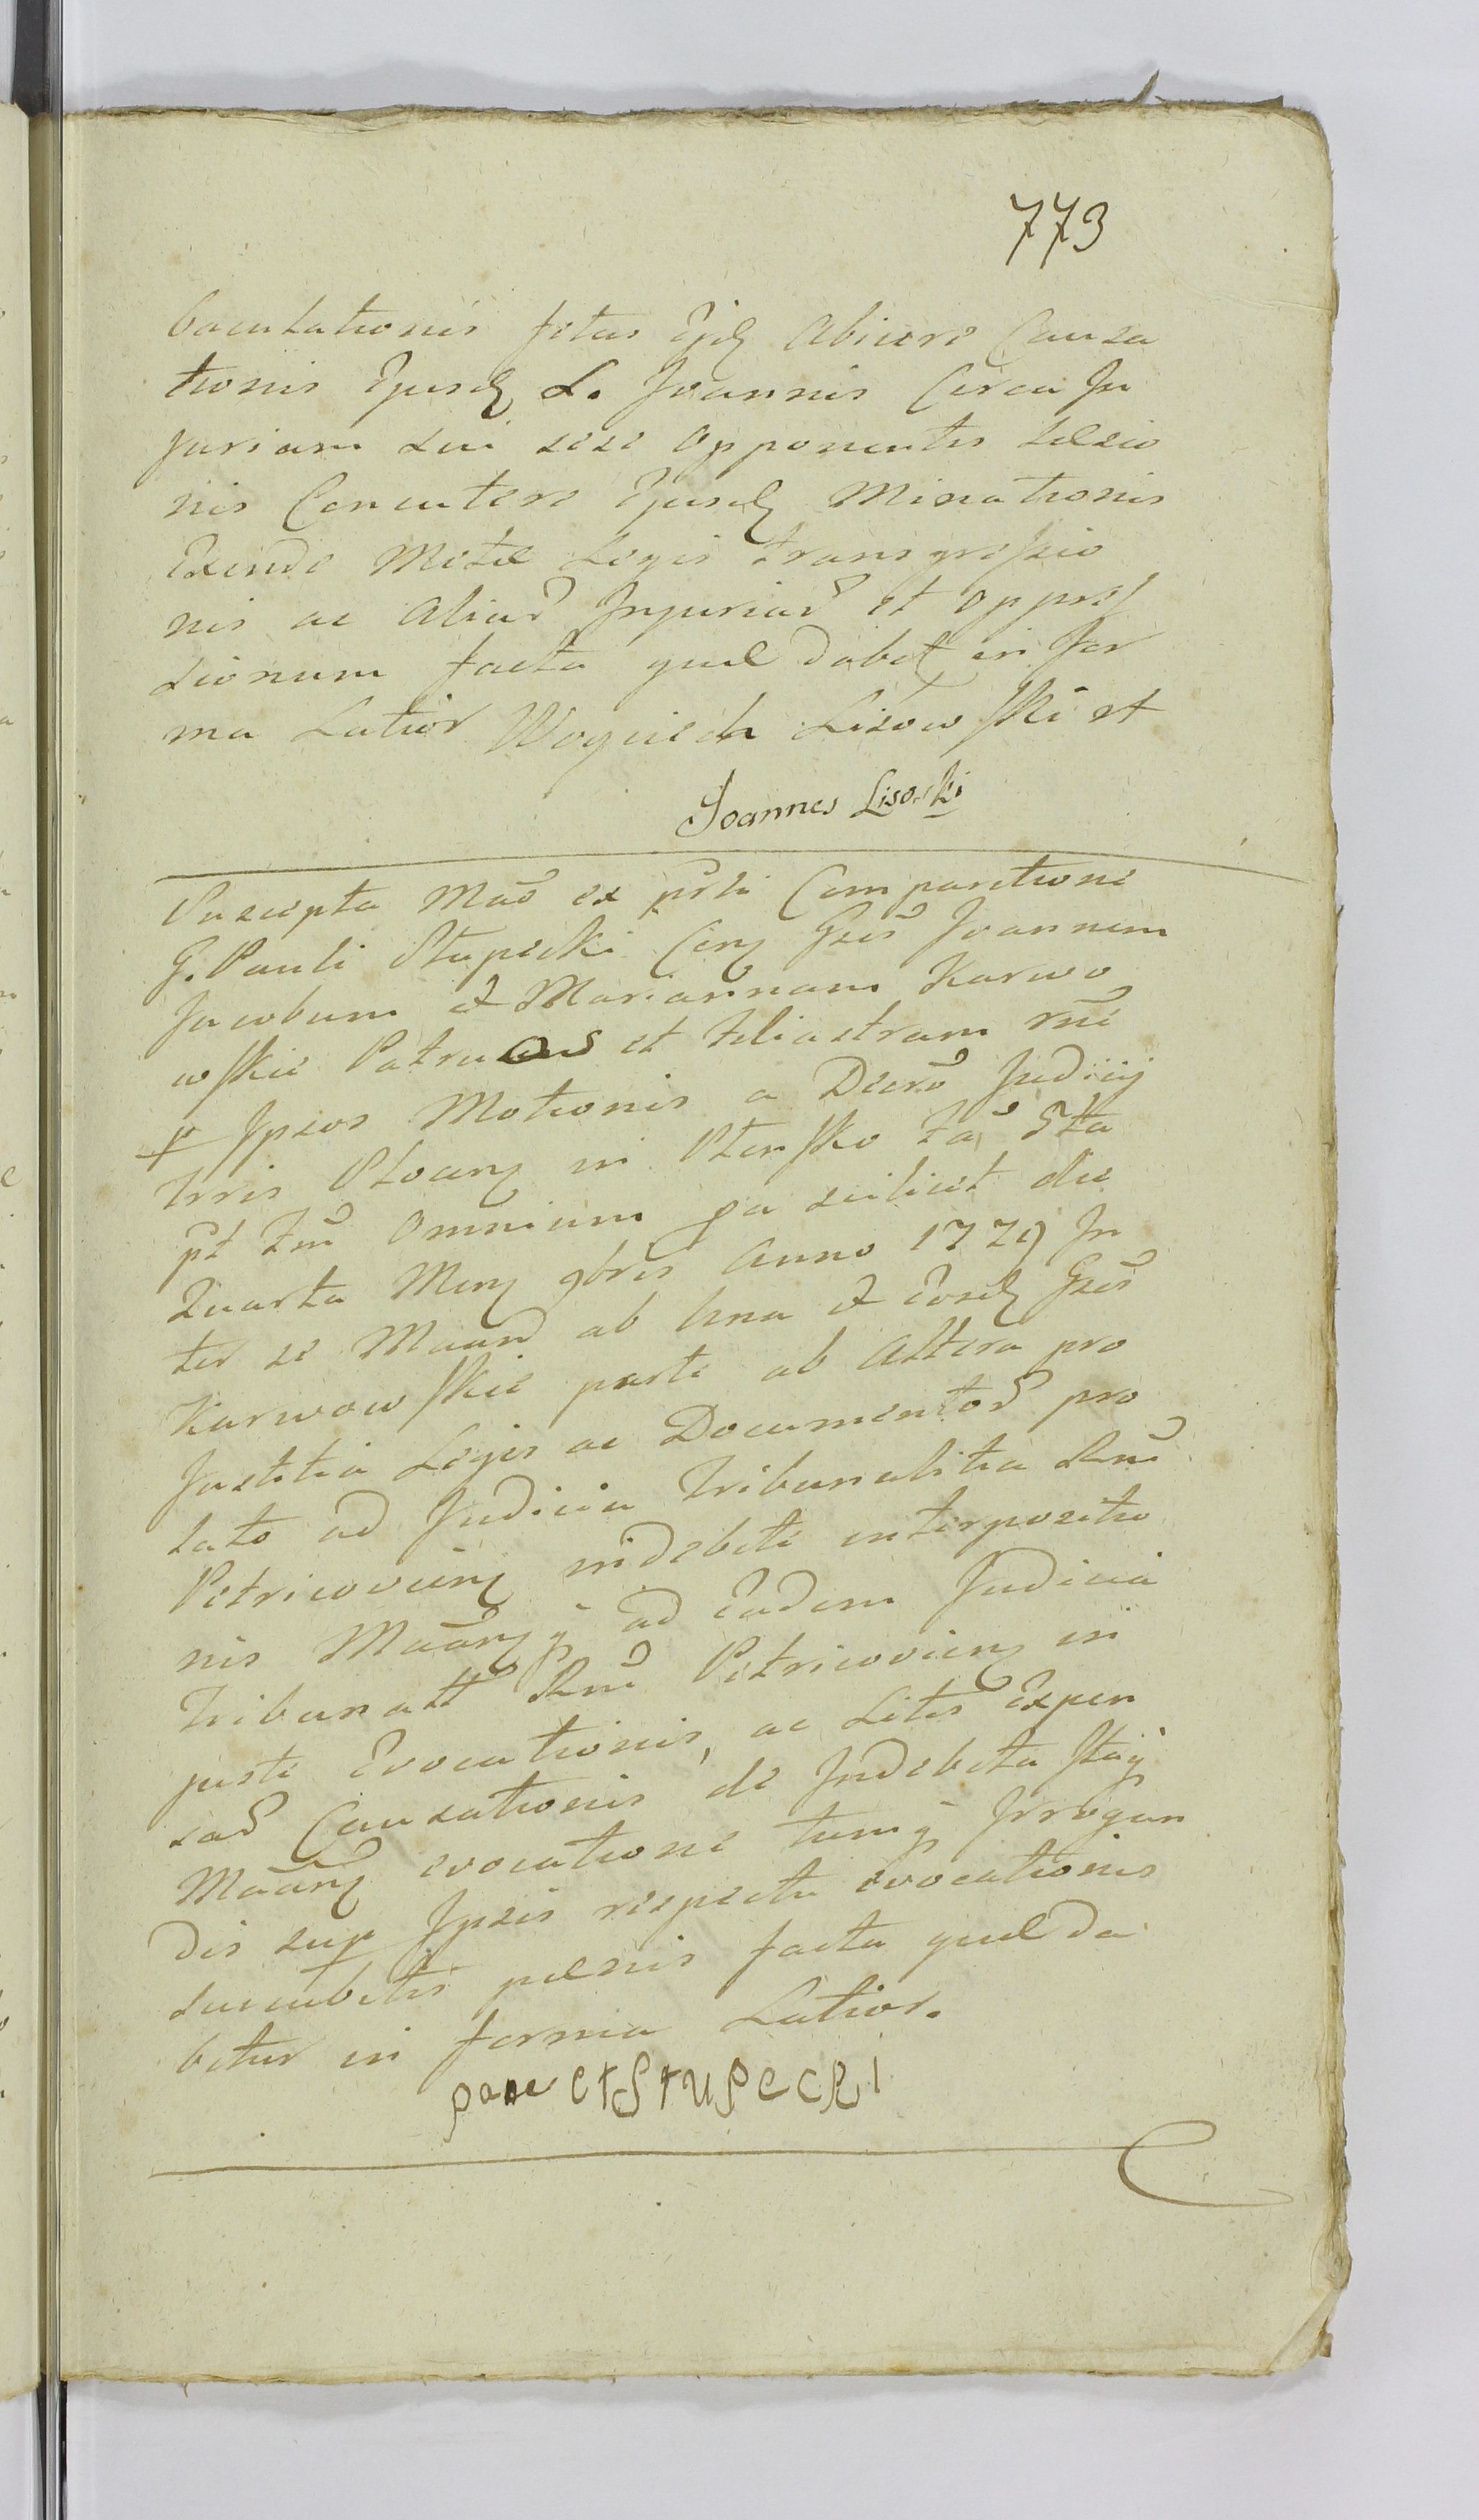 773
baculationis fctas Ejd Abinere Causa
tionis Ejusd L. Joannis Circa In
juriam sui sese opponentis Læsio
nis Concutere Ejusd Minationis
Exinde Metæ Legis transgressio
nis ac aliar Injuriar et oppres
sionum facta quæ dabet in for
ma Latior Woyciech Lisowski et
Joannes Lisoski
Suscepta Mao ex pnti Comparitione
G. Pauli Stupecki Conz Gsos Joannem
Jacobum et Mariannam Karwo
wskie Patruos et Filiastram rne
p Ipsos Motionis a Decro Judicij
trris Plocenz in Plonsko Fa 5ta
pt Fm Omnium ga scilicet die
Quarta Menz 9bris Anno 1779 In
ter se Maand ab Una et Eosd Gsos
Karwowskie parte ab Altera pro
Justitia Legis ac Documentor pro
lato ad Judicia Tribunalitia Rni
Petricoviens indebite interpositio
nis Maanz q ad Eadem Judicia
Tribunalt Rni Petricoviens in
juste Evocationis, ac Litis Expen
sar Causationis de Indebita
Maanz evocatione tumq Irrogan
dis sup Ipsis respectu evocationis
succubitis pænis facta quæ da
betur in forma Latior.
Stupecki